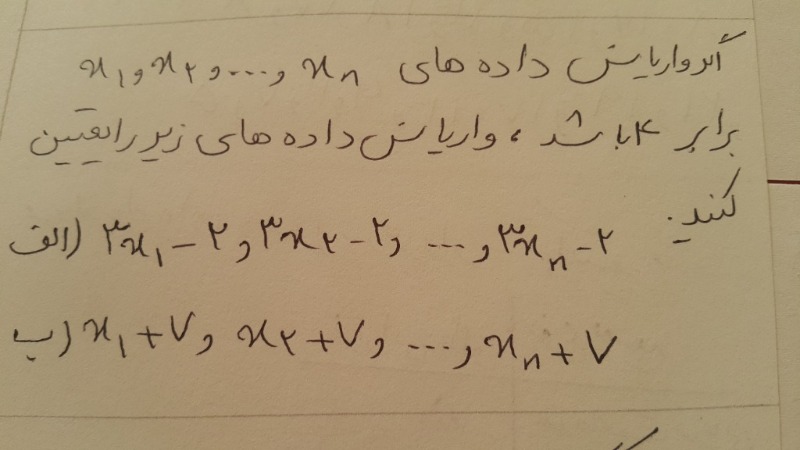 اگر واریانس داده های x۱, x۲, ..., xn
برابر ۴ باشد، واریانس داده های زیر را تعیین
کنید:
الف) ۳x۱ - ۲, ۳x۲ - ۲, ..., ۳xn - ۲
ب) x۱ + ۷, x۲ + ۷, ..., xn + ۷